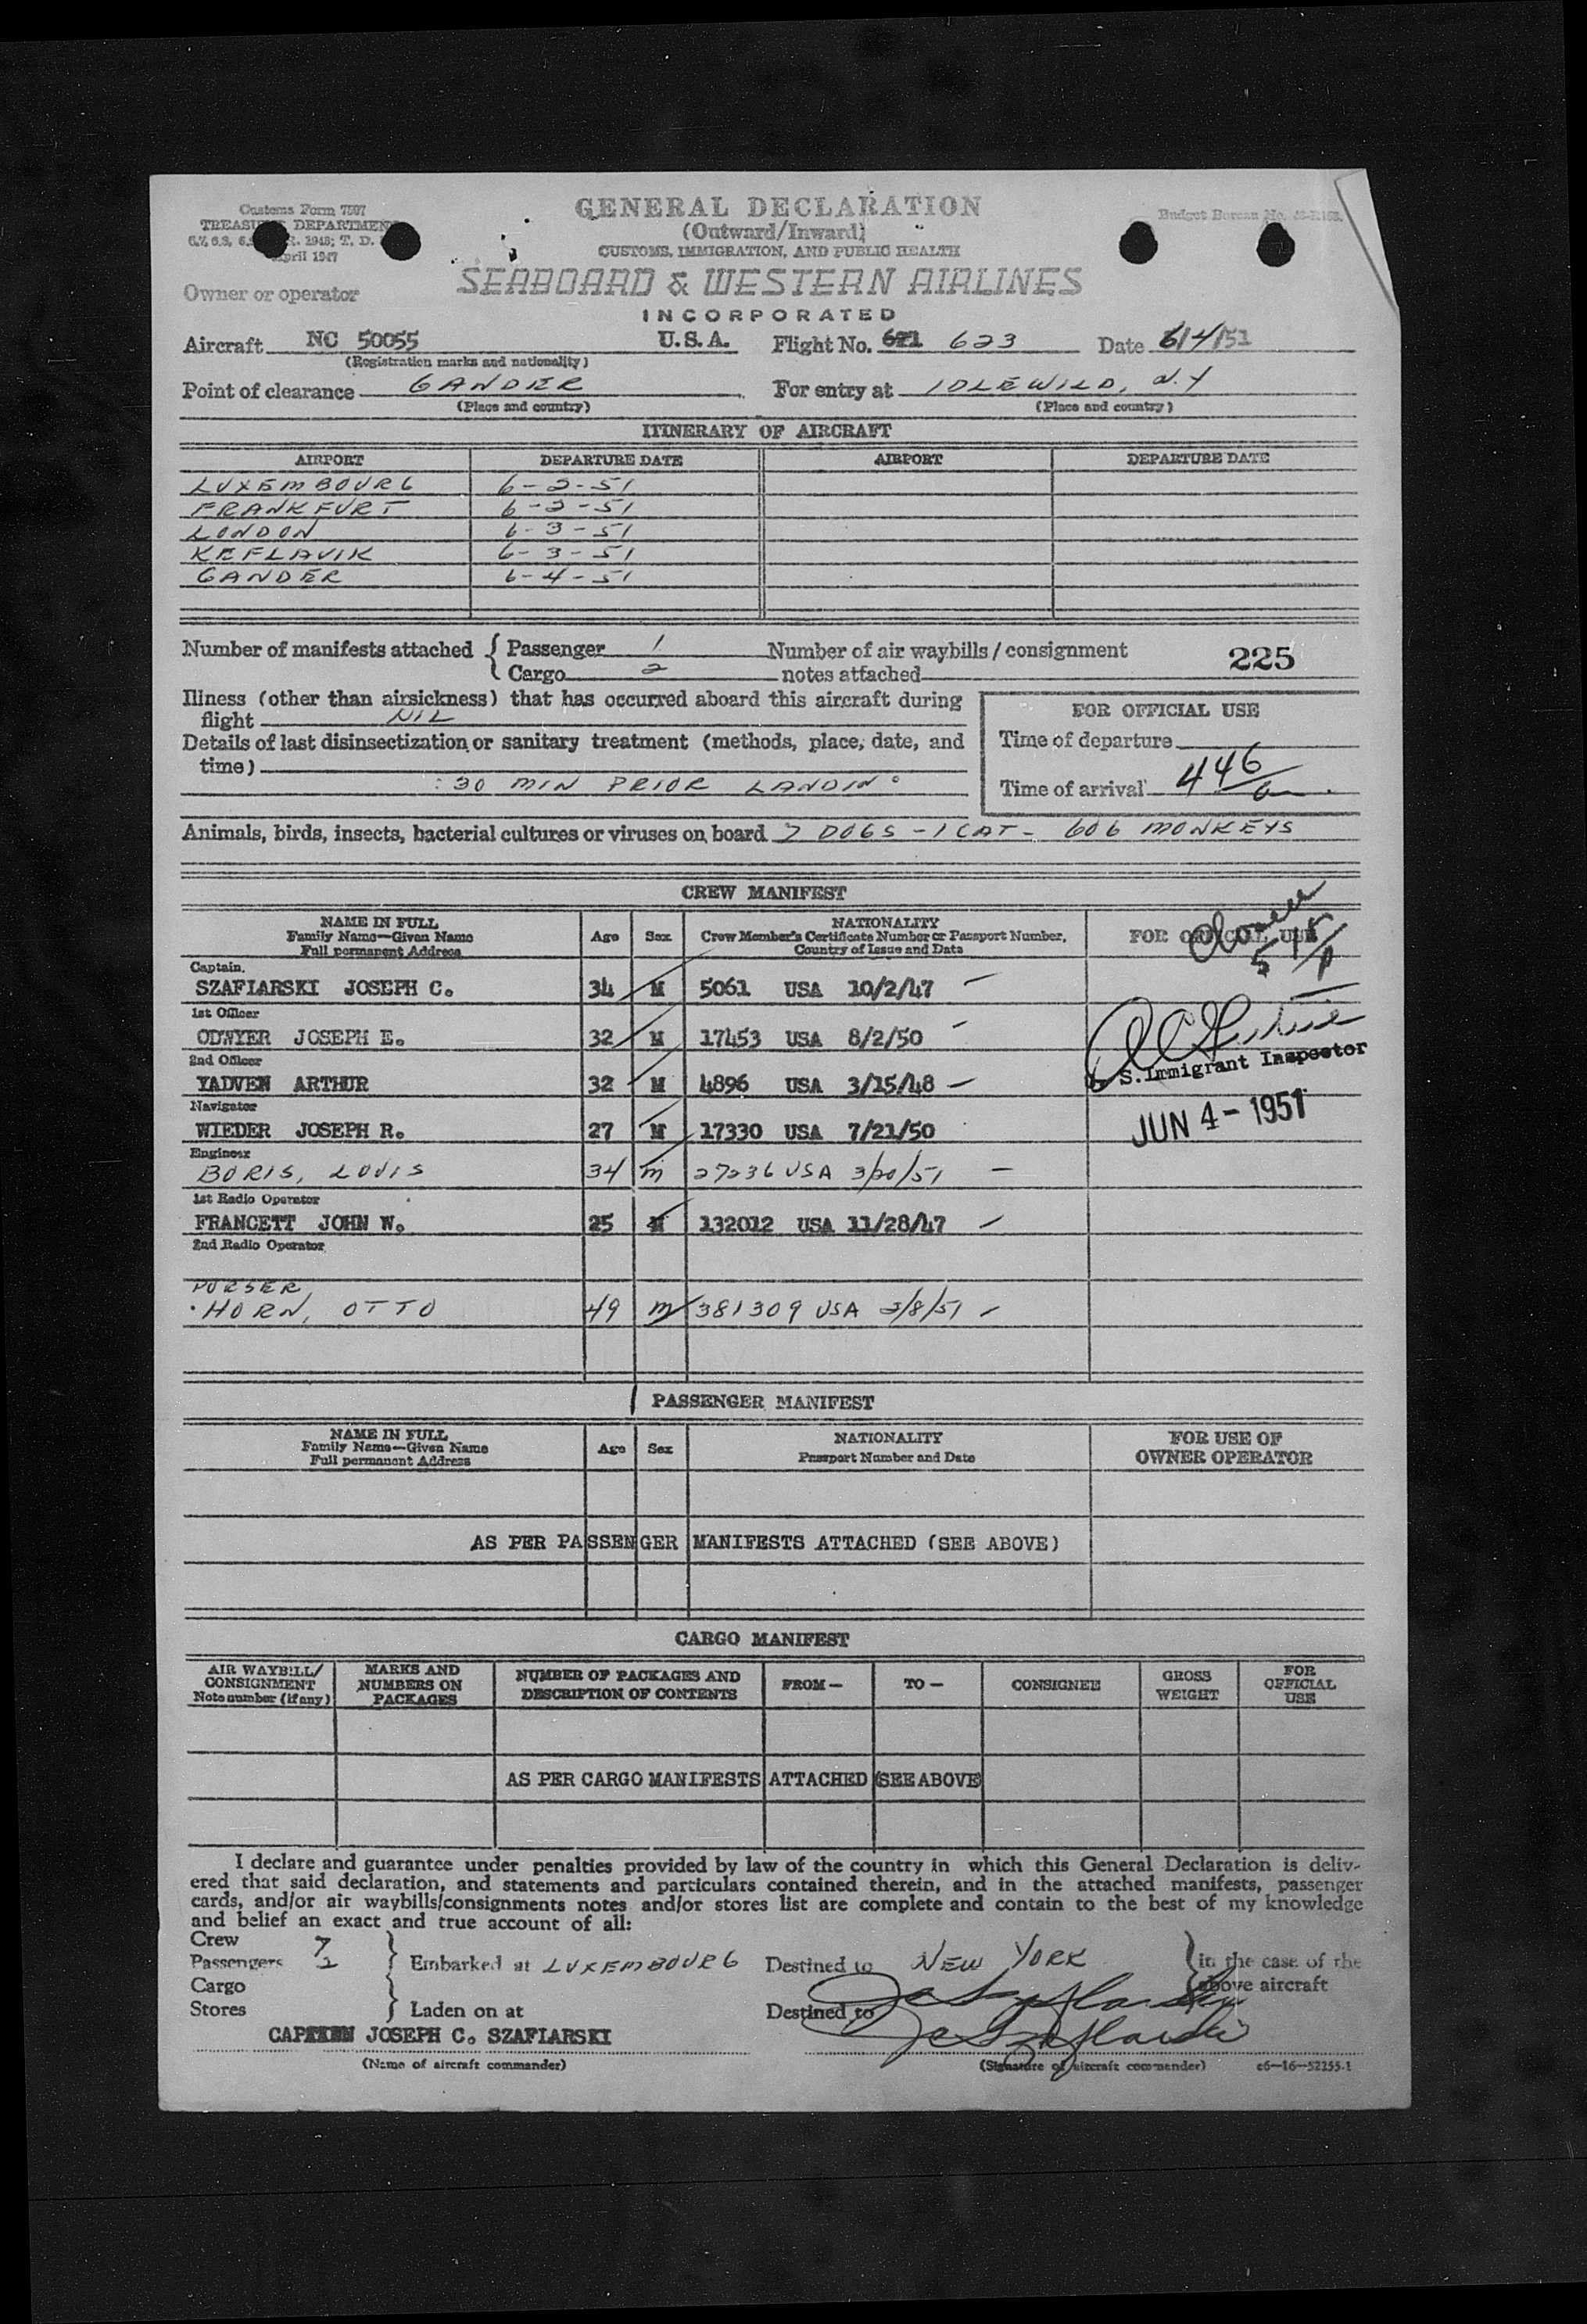 Customs Form 7507
TREASURY DEPARTMENT
April 1947
GENERAL DECLARATION
(Outward/Inward)
CUSTOMS, IMMIGRATION, AND PUBLIC HEALTH
Budget Bureau No.
Owner or operator
SEABOARD & WESTERN AIRLINES
INCORPORATED
Aircraft NC 50055 U.S.A. Flight No. 623 Date 6/4/51
(Registration marks and nationality)
Point of clearance GANDER For entry at IDLEWILD, N.Y
(Place and country) (Place and country)
ITINERARY OF AIRCRAFT
AIRPORT DEPARTURE DATE AIRPORT DEPARTURE DATE
LUXEMBOURG 6-2-51
FRANKFURT 6-2-51
LONDON 6-3-51
KEFLAVIK 6-3-51
GANDER 6-4-51
Number of manifests attached { Passenger 1 Number of air waybills/consignment
Cargo 2 notes attached 225
Illness (other than airsickness) that has occurred aboard this aircraft during
flight NIL
FOR OFFICIAL USE
Details of last disinsectization or sanitary treatment (methods, place, date, and
time)
Time of departure
:30 MIN PRIOR LANDING
Time of arrival 446
Animals, birds, insects, bacterial cultures or viruses on board 7 DOGS - 1 CAT - 606 MONKEYS
CREW MANIFEST
NAME IN FULL
Family Name—Given Name
Full permanent Address
Age Sex
NATIONALITY
Crew Member's Certificate Number or Passport Number,
Country of Issue and Date
FOR OFFICIAL USE
Captain
SZAFIARSKI JOSEPH C. 34 M 5061 USA 10/2/47
1st Officer
ODWYER JOSEPH E. 32 M 17453 USA 8/2/50
2nd Officer
YADVEN ARTHUR 32 M 4896 USA 3/15/48
U. S. Immigrant Inspector
JUN 4 - 1951
Navigator
WIEDER JOSEPH R. 27 M 17330 USA 7/21/50
Engineer
BORIS, LOUIS 34 M 27236 USA 3/20/51
1st Radio Operator
FRANCETT JOHN W. 25 M 132012 USA 11/28/47
2nd Radio Operator
PURSER
HORN, OTTO 49 M 381309 USA /8/51
PASSENGER MANIFEST
NAME IN FULL
Family Name—Given Name
Full permanent Address
Age Sex
NATIONALITY
Passport Number and Date
FOR USE OF
OWNER OPERATOR
AS PER PASSENGER MANIFESTS ATTACHED (SEE ABOVE)
CARGO MANIFEST
AIR WAYBILL/
CONSIGNMENT
Note number (if any)
MARKS AND
NUMBERS ON
PACKAGES
NUMBER OF PACKAGES AND
DESCRIPTION OF CONTENTS
FROM—
TO—
CONSIGNEE
GROSS
WEIGHT
FOR
OFFICIAL
USE
AS PER CARGO MANIFESTS ATTACHED (SEE ABOVE)
I declare and guarantee under penalties provided by law of the country in which this General Declaration is deliv-
ered that said declaration, and statements and particulars contained therein, and in the attached manifests, passenger
cards, and/or air waybills/consignments notes and/or stores list are complete and contain to the best of my knowledge
and belief an exact and true account of all:
Crew 7
Passengers Embarked at LUXEMBOURG Destined to NEW YORK in the case of the
Cargo above aircraft
Stores Laden on at Destined to
JOSEPH C. SZAFIARSKI
(Name of aircraft commander) (Signature of aircraft commander) c6—16—52255-1